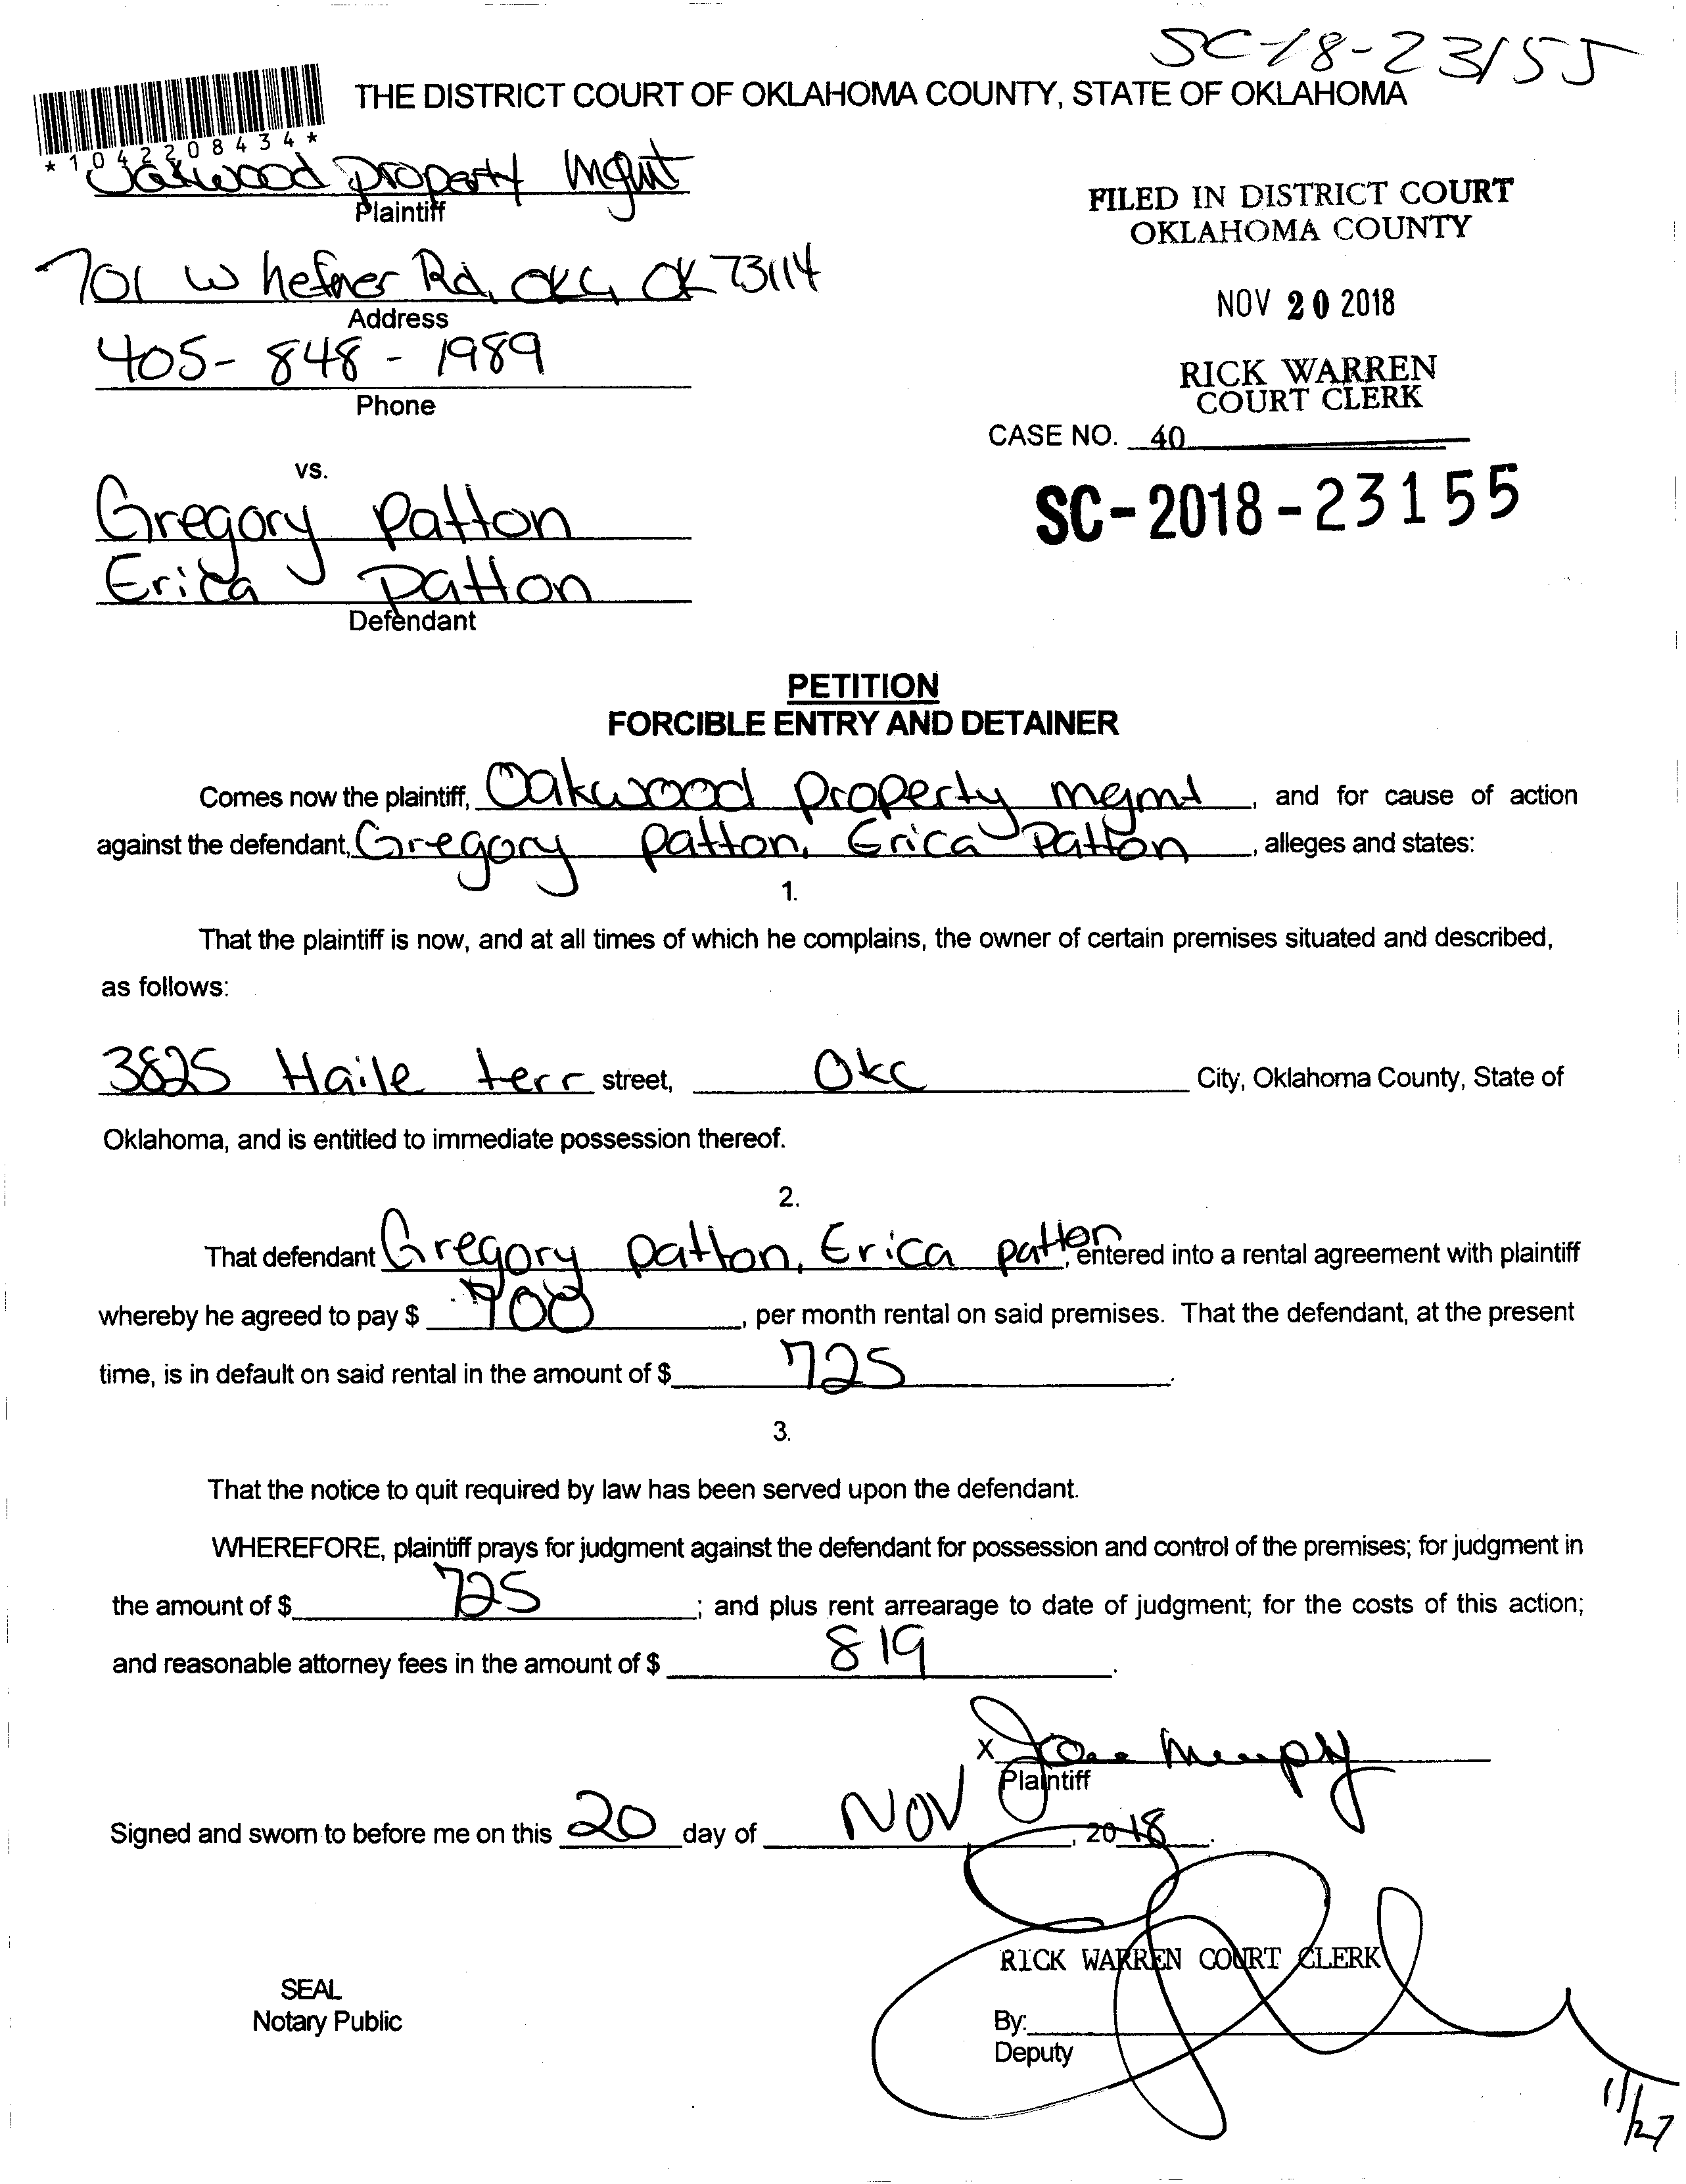 SC-18-23155
THE DISTRICT COURT OF OKLAHOMA COUNTY, STATE OF OKLAHOMA
*1042208434*
Oakwood property mgmt
Plaintiff
FILED IN DISTRICT COURT
OKLAHOMA COUNTY
701 W hefner Rd, OKC, OK 73114
Address
NOV 20 2018
405-848-1989
Phone
RICK WARREN
COURT CLERK
CASE NO. 40
vs.
SC-2018-23155
Gregory Patton
Erica Patton
Defendant
PETITION
FORCIBLE ENTRY AND DETAINER
Comes now the plaintiff, Oakwood property mgmt, and for cause of action
against the defendant, Gregory patton, Erica Patton, alleges and states:
1.
That the plaintiff is now, and at all times of which he complains, the owner of certain premises situated and described,
as follows:
3825 Haile terr street, Okc City, Oklahoma County, State of
Oklahoma, and is entitled to immediate possession thereof.
2.
That defendant Gregory patton, Erica patton, entered into a rental agreement with plaintiff
whereby he agreed to pay $ 700, per month rental on said premises. That the defendant, at the present
time, is in default on said rental in the amount of $ 725.
3.
That the notice to quit required by law has been served upon the defendant.
WHEREFORE, plaintiff prays for judgment against the defendant for possession and control of the premises; for judgment in
the amount of $ 725; and plus rent arrearage to date of judgment; for the costs of this action;
and reasonable attorney fees in the amount of $ 819.
X
Plaintiff
Signed and sworn to before me on this 20 day of NOV, 2018.
RICK WARREN COURT CLERK
SEAL
Notary Public
By:
Deputy
11/27